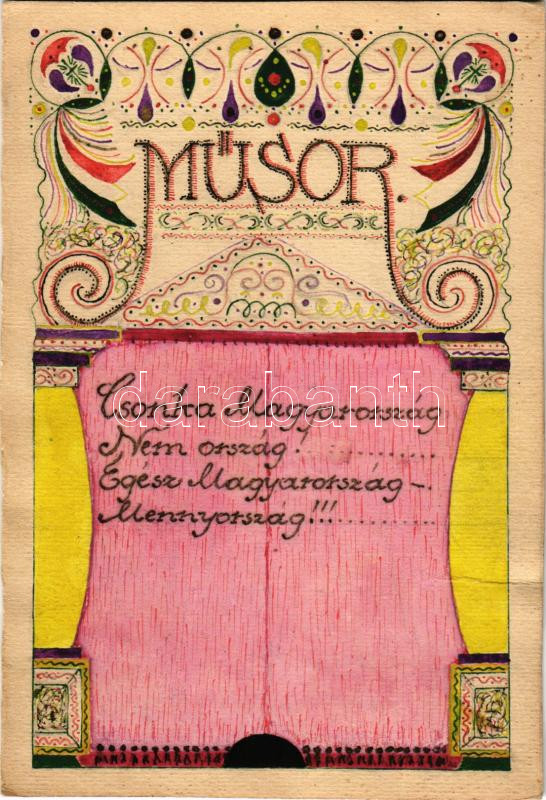 MŰSOR.
Csonka Magyarország
Nem ország!...........
Egész Magyarország –.
Mennyország!!!..........
darabanth